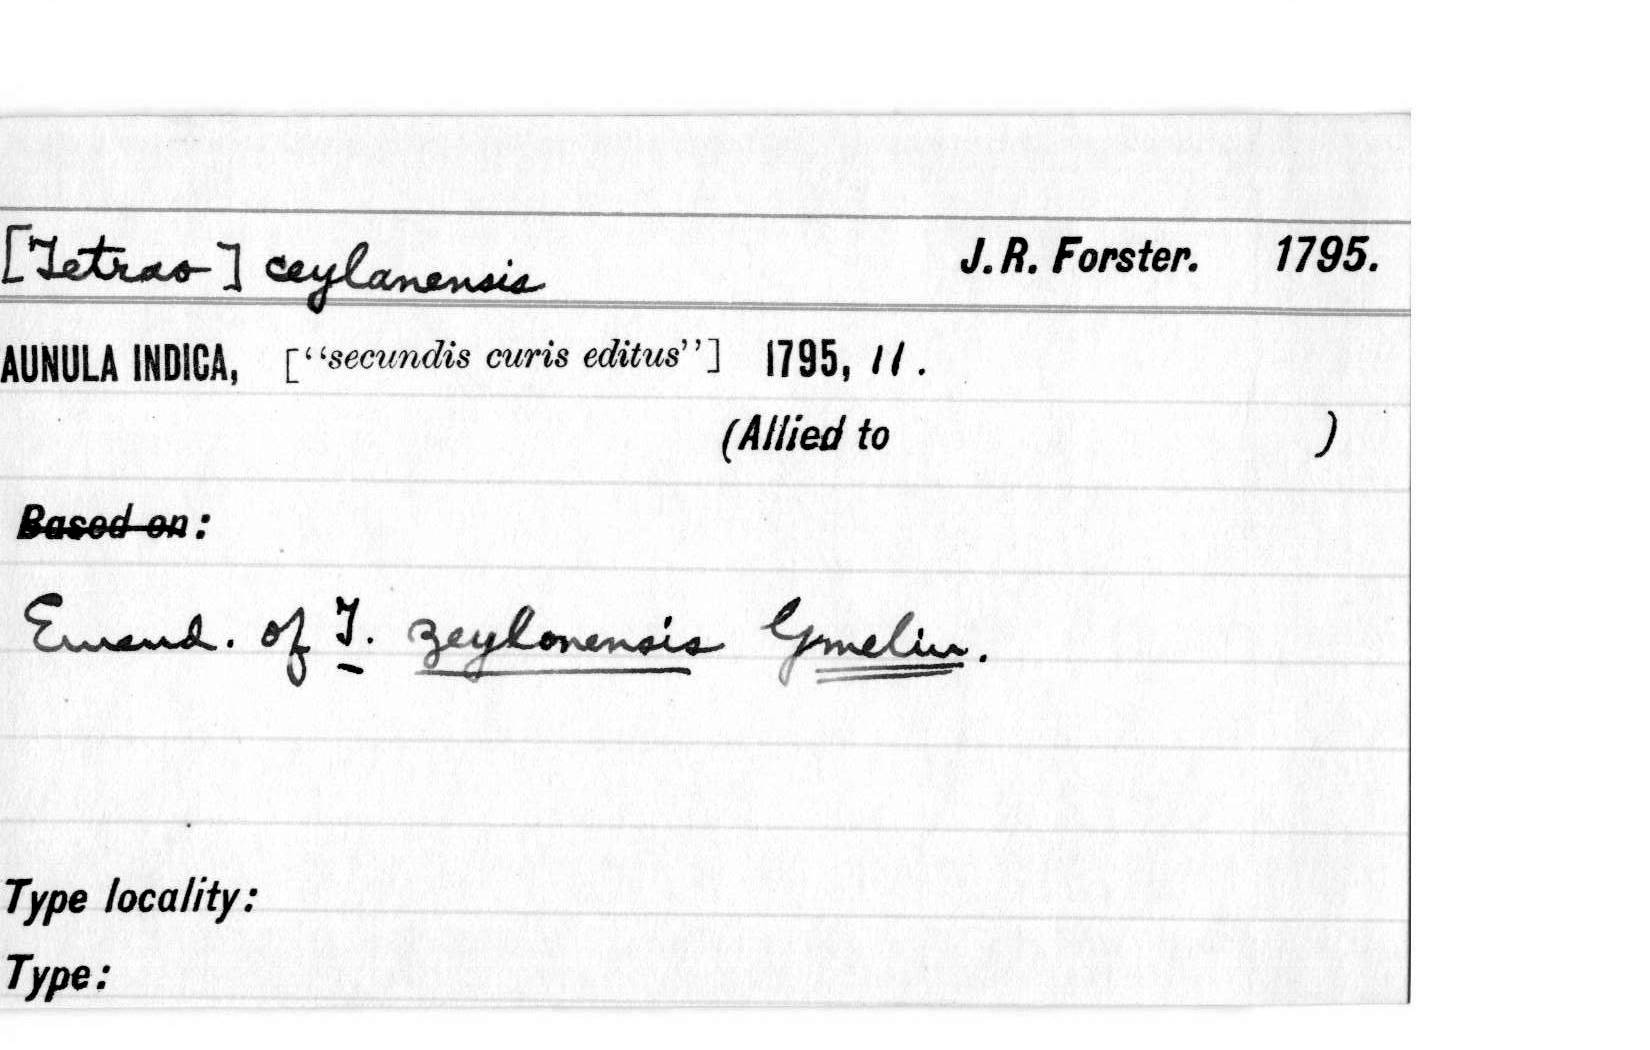 [Tetrao] ceylanensis J. R. Forster. 1795.
AUNULA INDICA, [“secundis curis editus”] 1795, 11.
(Allied to )
Based on:
Emend. of T. zeylonensis Gmelin.
Type locality:
Type: